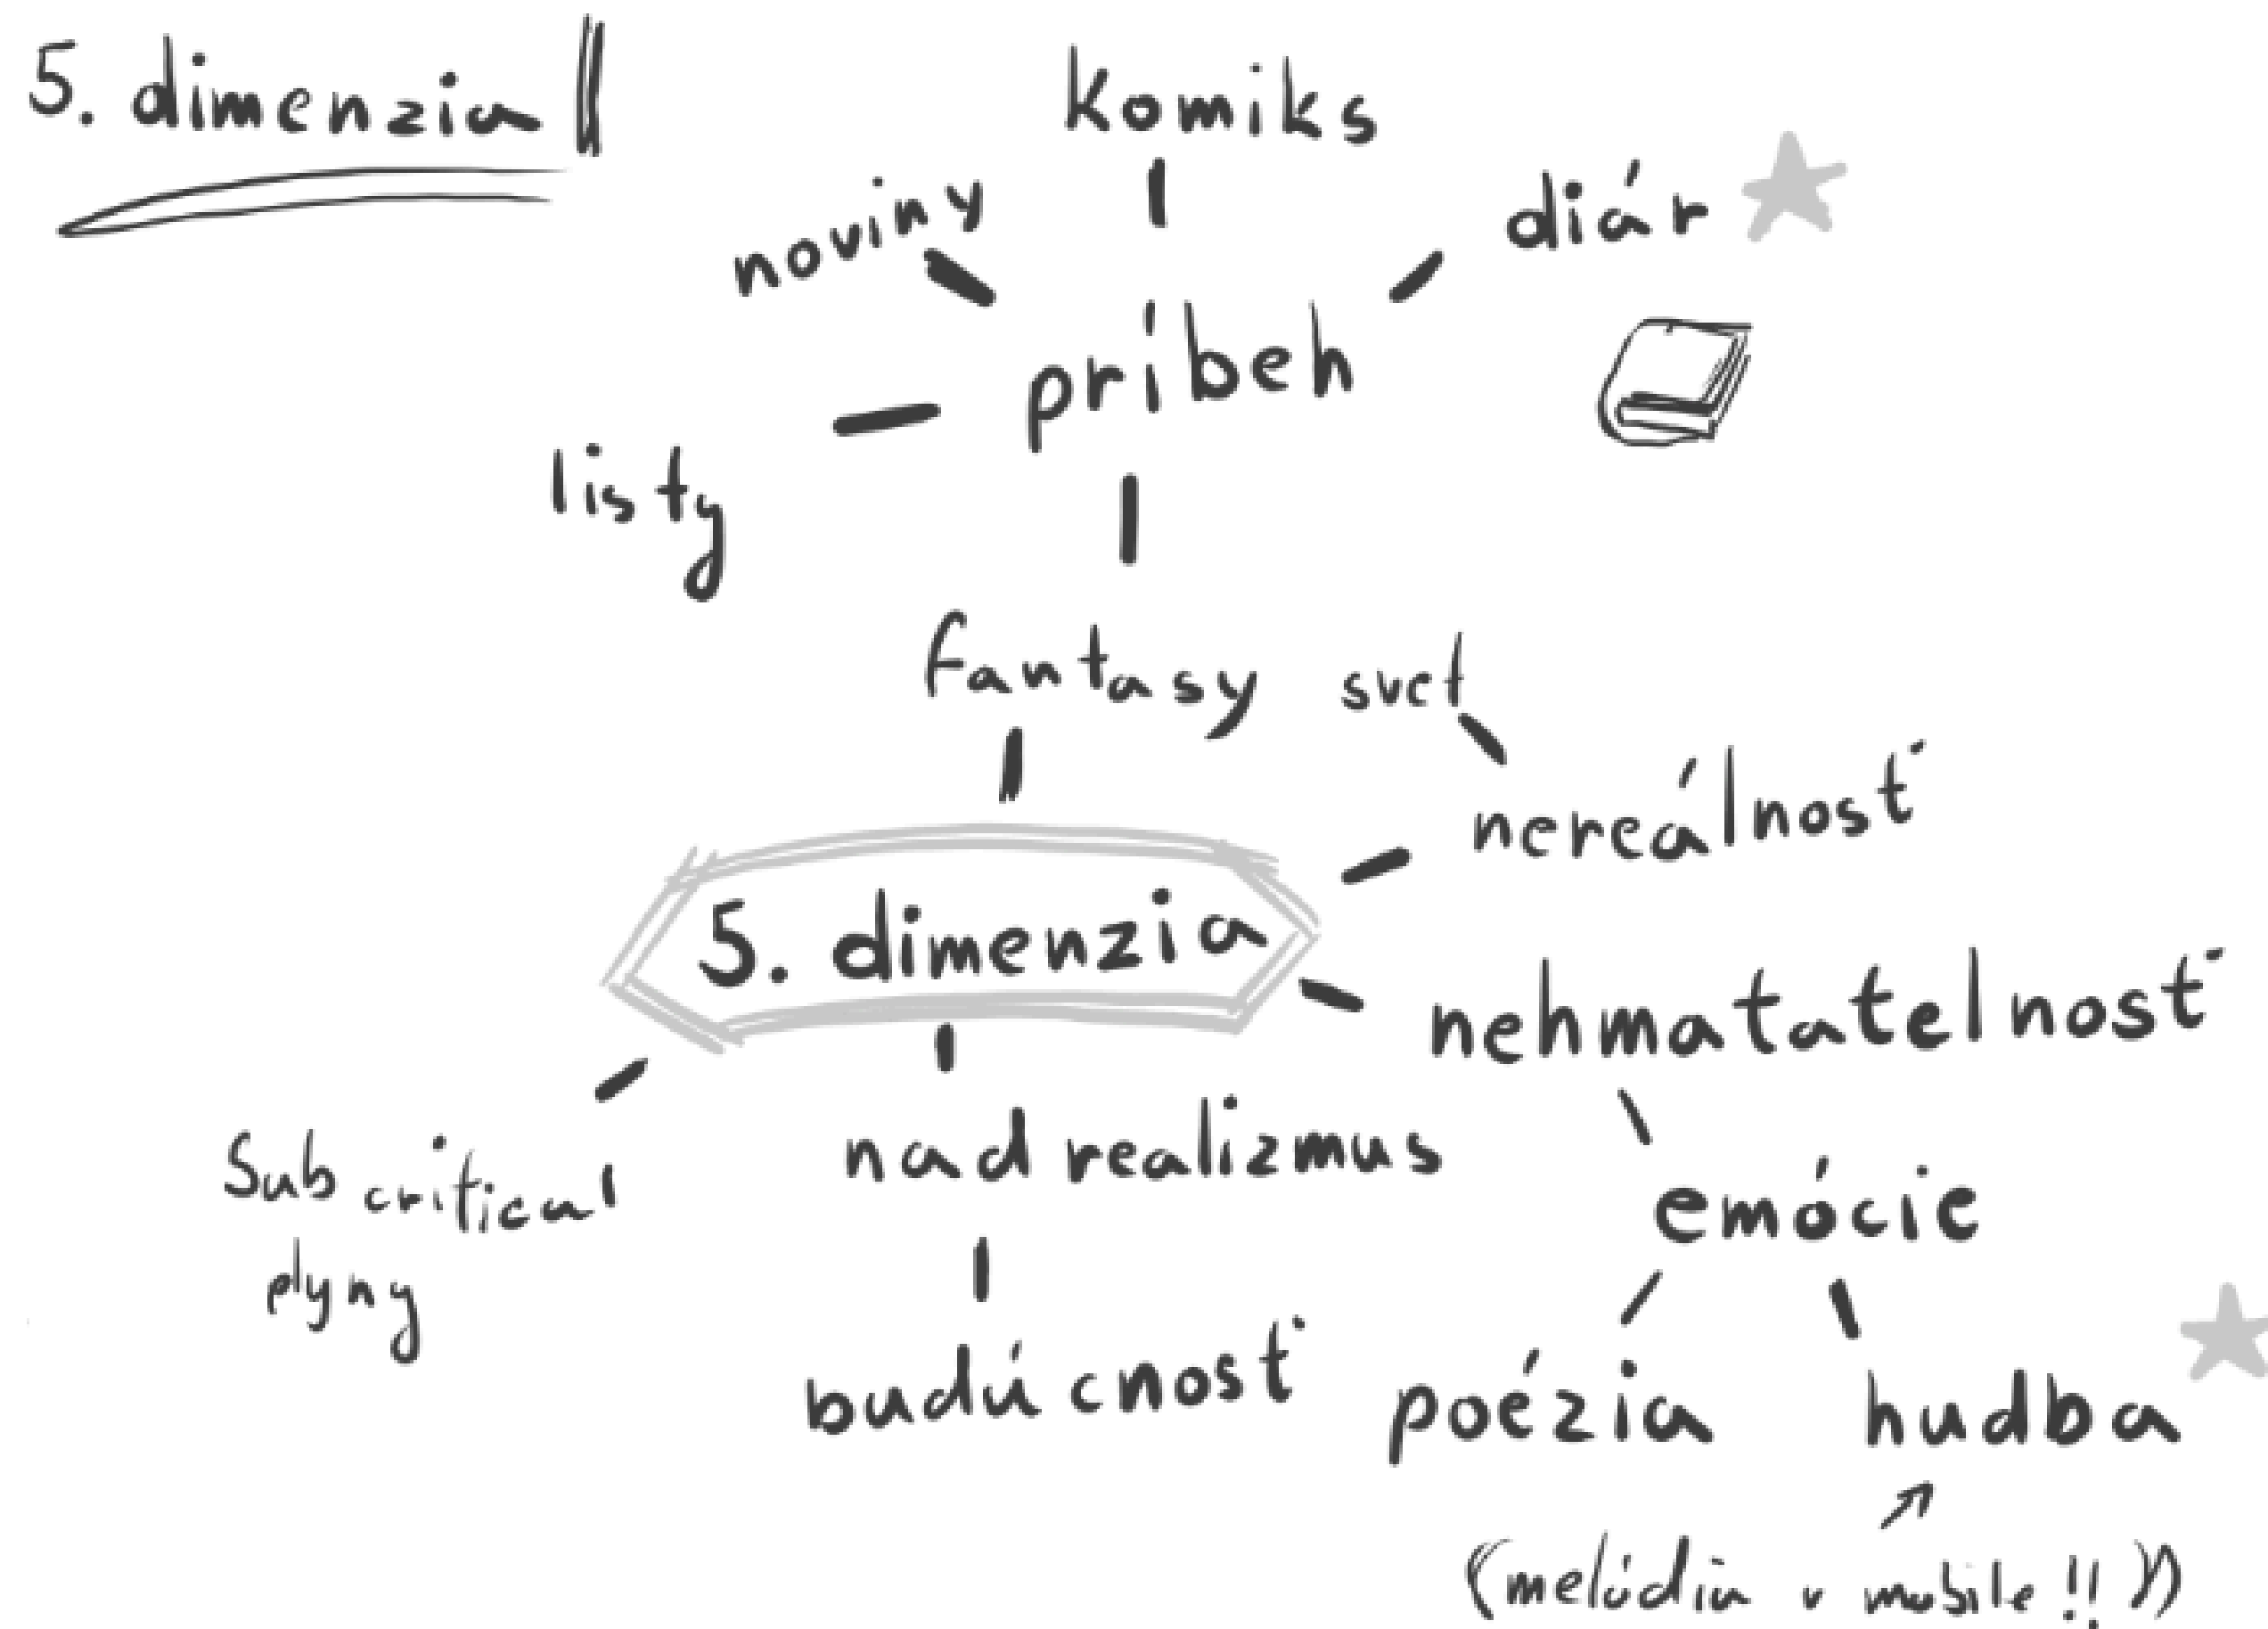 5. dimenzia
komiks
noviny
diár
príbeh
listy
fantasy svet
nereálnosť
5. dimenzia
nehmatatelnosť
Subcritical
plyny
nadrealizmus
emócie
budúcnosť
poézia hudba
(melódia v mobile!!)